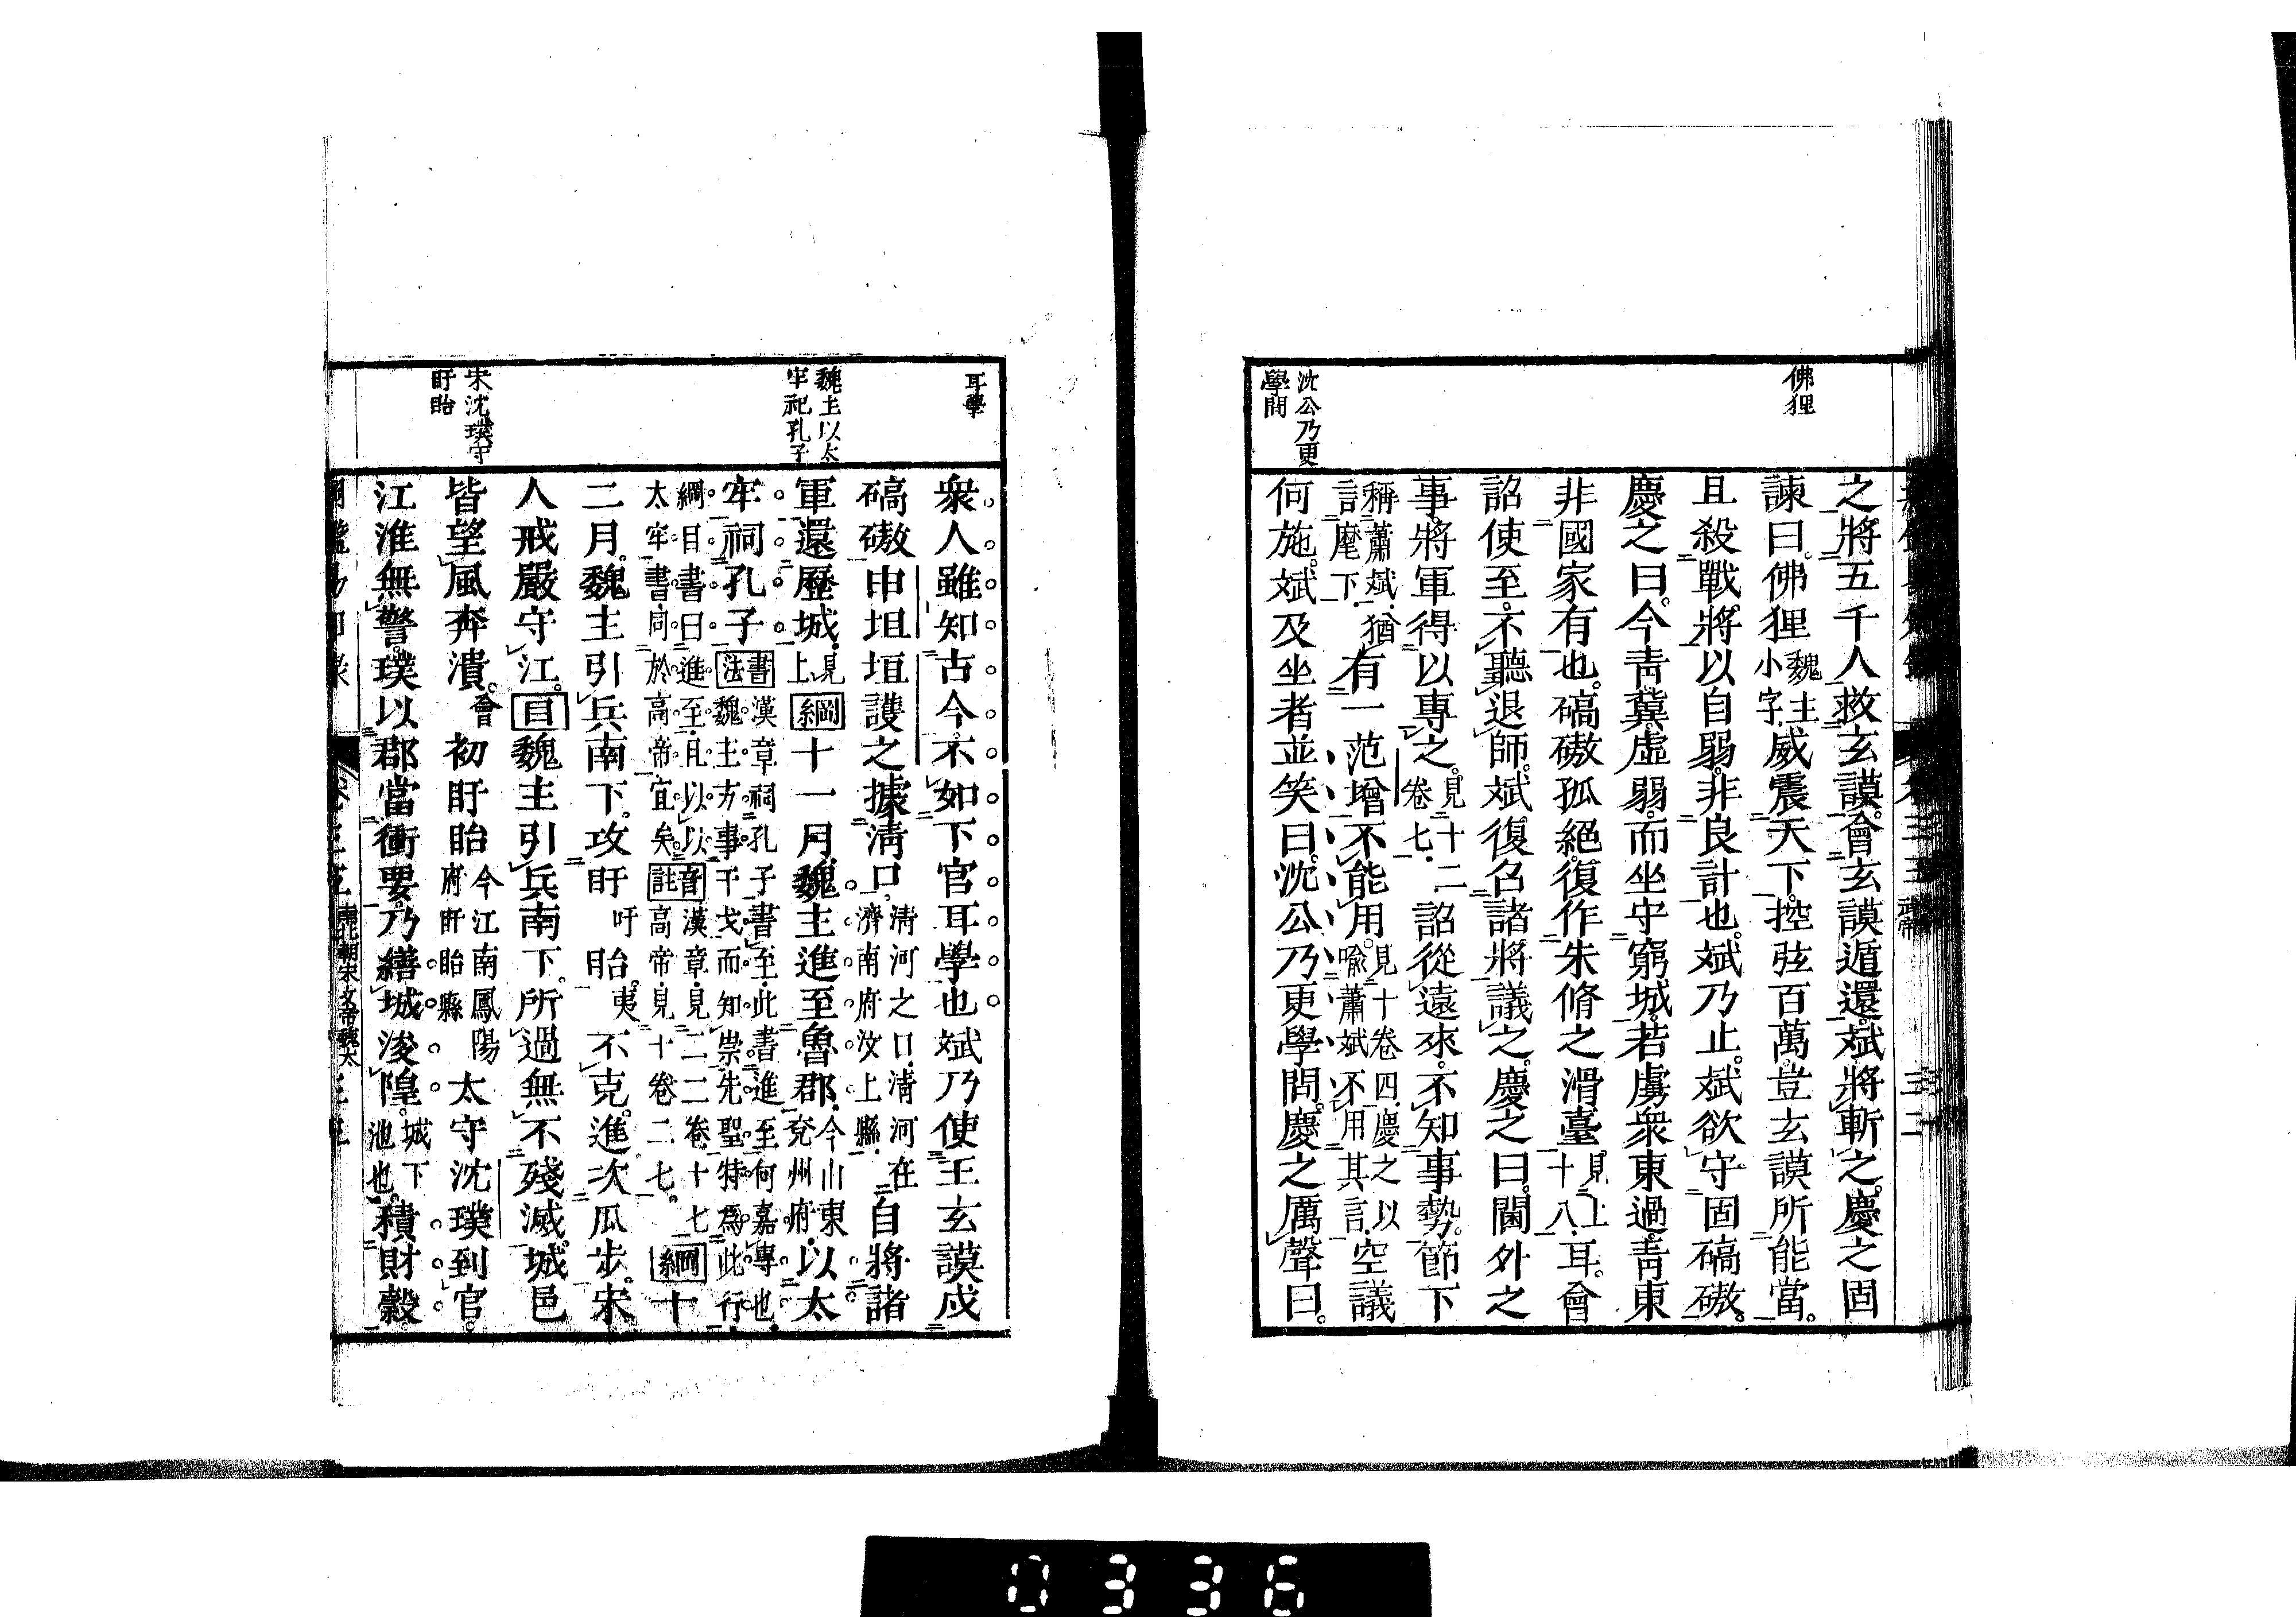 佛狸
之將五千人救玄謨會玄謨遁還斌將斬之慶之固
諫曰佛狸魏主小字威震天下控弦百萬豈玄謨所能當
且殺戰將以自弱非良計也斌乃止斌欲守固碻磝
慶之曰今青冀虛弱而坐守窮城若虜衆東過青東
非國家有也碻磝孤絕復作朱脩之滑臺見上十八耳會
詔使至不聽退師斌復召諸將議之慶之曰閫外之
事將軍得以專之見十二卷七詔從遠來不知事勢節下
稱蕭斌猶言麾下有一范增不能用見十卷四慶之以喩蕭斌不用其言空議
沈公乃更
學問
何施斌及坐者並笑曰沈公乃更學問慶之厲聲曰
耳學
衆人雖知古今不如下官耳學也斌乃使王玄謨戍
碻磝申坦垣護之據淸口淸河之口淸河在濟南府汶上縣自將諸
魏主以太
牢祀孔子
軍還歷城見上綱十一月魏主進至魯郡今山東兗州府以太
牢祠孔子書法漢章祠孔子書至此書進至何嘉專也魏主方事干戈而知崇先聖特爲此行
綱目書曰進至且以以太牢書同於高帝宜矣音註漢章見二二卷十七高帝見十卷二七綱十
二月魏主引兵南下攻盱吁眙夷不克進次瓜步宋
人戒嚴守江目魏主引兵南下所過無不殘滅城邑
宋沈璞守
盱眙
皆望風奔潰會初盱眙今江南鳳陽府盱眙縣太守沈璞到官
江淮無警璞以郡當衝要乃繕城浚隍城下池也積財穀
南北朝宋文帝魏太
0336